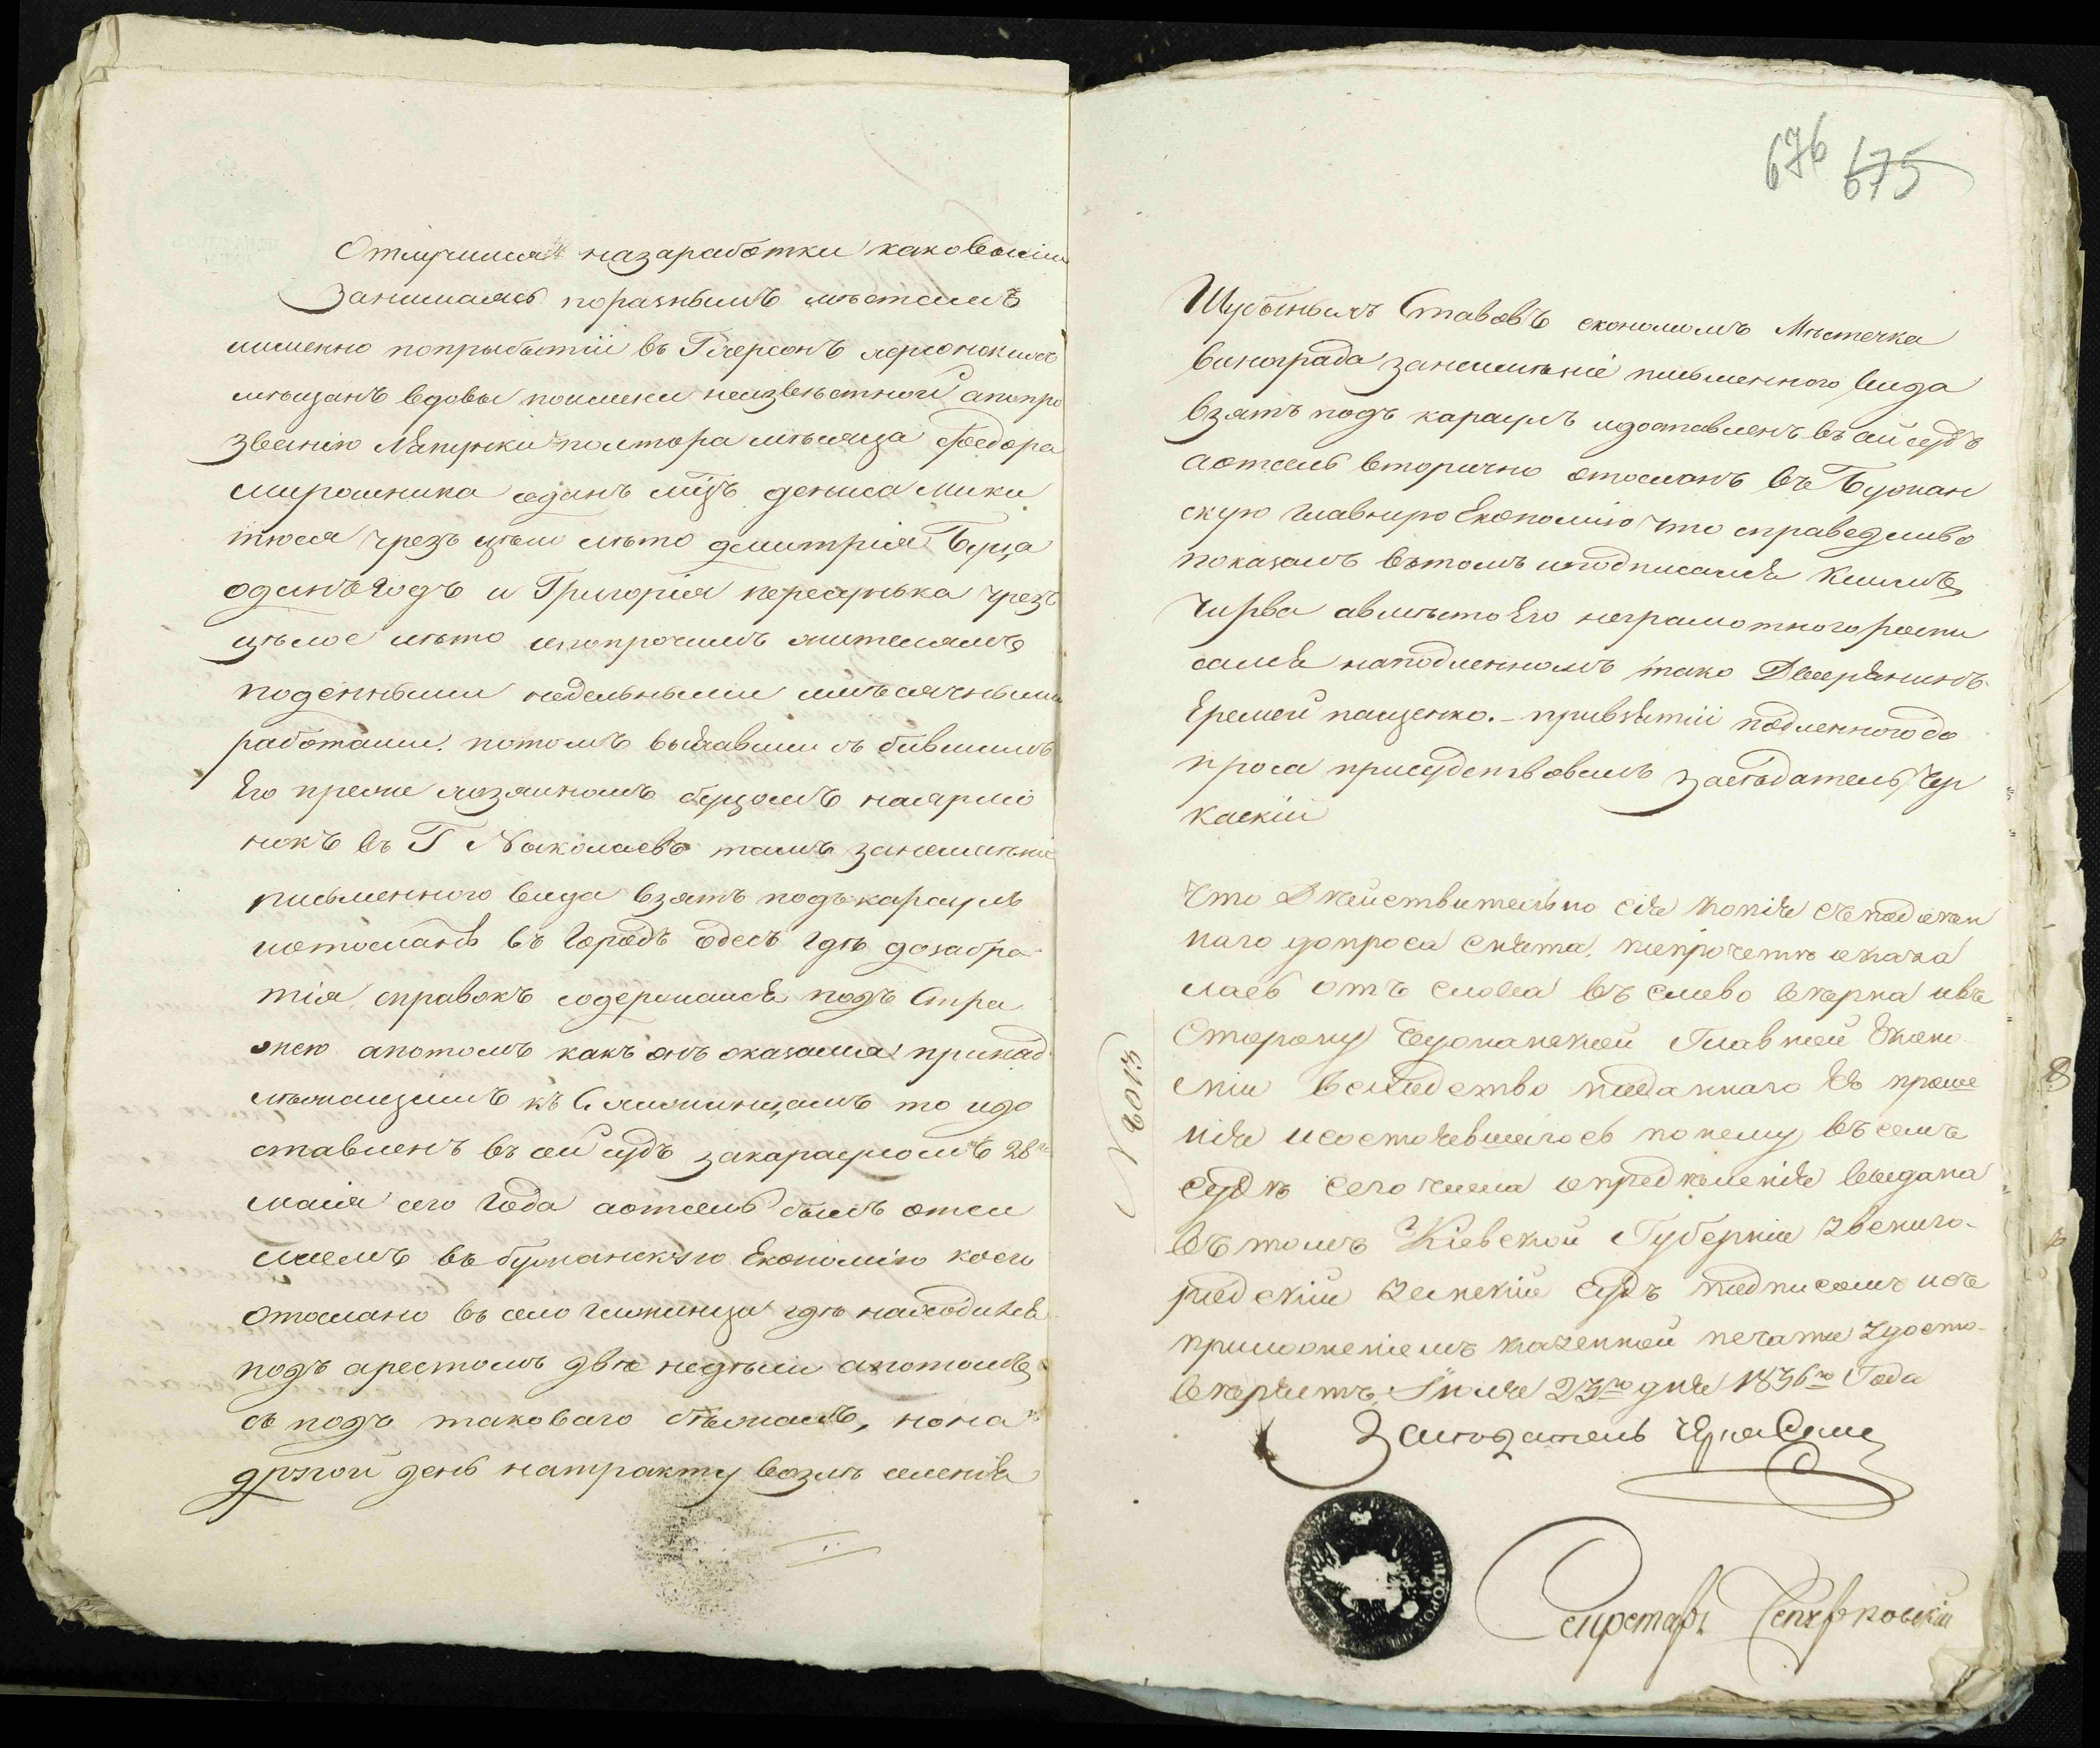 Отлучился на заработки каковыми
занимаясь поразнымъ местамъ
имменно поприбытіи въ Г Херсонъ херсонских
мѣщанъ вдовы поимени неизвѣстной апопро
званію полтора мѣсяца Федора
мирошника одинъ мцъ дениса Мики
тюся чрезъ цѣло лѣто дмитрія Буца
одинъ годъ и Григорія пересунька чрезъ
цѣлое лѣто ипопрочимъ жителямъ
поденными недельными имѣсячными
работами. потомъ выехавши съ бившимъ
Его преже хозяиномъ буцомъ наярмо
нокъ въ Г Николаевъ тамъ занеименіе
письменного вида взятъ подъ караулъ
иотосланъ въ Городъ одесъ гдѣ дозабра
тія справокъ содержался подъ Стра
жею апотомъ какъ онъ оказался принад
лѣжащимъ къ то идо
ставленъ въ сей судъ закарауломъ 28го
маія сего Года аотсель былъ отси
лаемъ въ бужанскую Економію коего
отослано въ село гдѣ находился
подъ арестомъ двѣ недѣли апотомъ
съ подъ таковаго бѣжалъ, нона
другой день натракту возлѣ селенія
676 675
Шубиныхъ Ставовъ економомъ Мѣстечка
Винограда занеименіе письменного вида
взятъ подъ караулъ идоставленъ въ сей судъ
аотсель вторично отосланъ въ Бужан
скую главную Економію что справедливо
показалъ вътомъ иподписался Климъ
Чирва авместо Его неграмотного роспи
сался наподленномъ тако Дворянинъ
Еремей пащенко. - привзятіи подленного до
проса присудствовалъ засѣдатель Чер
каскій
Что Дѣйствительно сія копія съ подлен
наго допроса снята, ипрочетъ оказа
лась отъ слова въ слово вѣрна ивъ
Сторону Бужанской Главной Эконо
міи вслѣдство поданнаго Ею проше
нія исостоявшегось понему въ семъ
судѣ сего числа опредѣленія выдана
въ томъ Кіевской Губерніи Звениго-
родскій земскій судъ подписомъ исъ
приложеніемъ казенной печати удосто-
вѣряетъ. Іюля 23го дня 1836го Года
Засѣдатель
Секретарь
N 6013